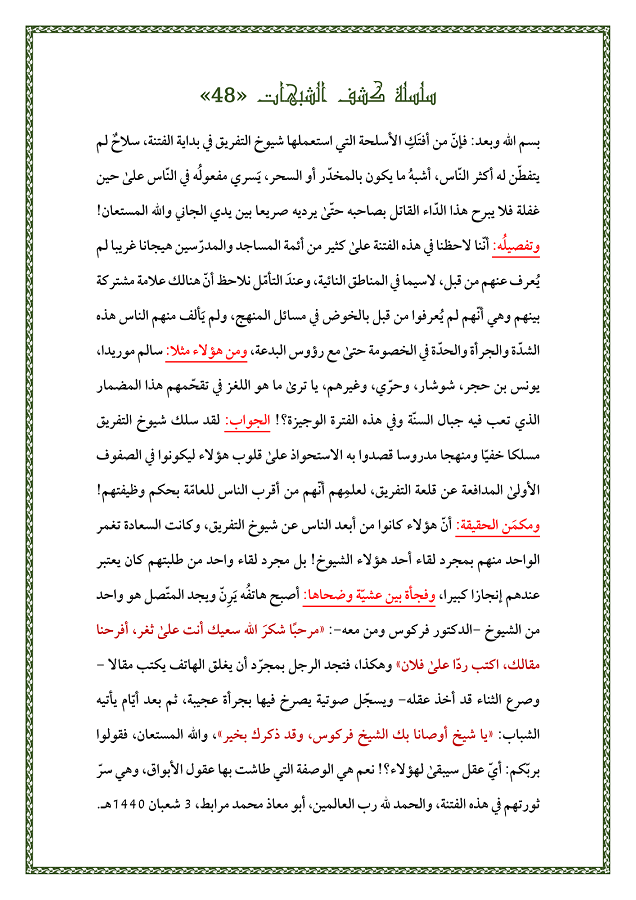 سلسلة كشف الشبهات «48»
بسم الله وبعد: فإنّ من أفتَكِ الأسلحة التي استعملها شيوخ التفريق في بداية الفتنة، سلاحٌ لم
يتفطّن له أكثر النّاس، أشبهُ ما يكون بالمخدّر أو السحر، يَسري مفعولُه في النّاس علىٰ حين
غفلة فلا يبرح هذا الدّاء القاتل بصاحبه حتّىٰ يرديه صريعا بين يدي الجاني والله المستعان!
وتفصيلُه: أنّنا لاحظنا في هذه الفتنة علىٰ كثير من أئمة المساجد والمدرّسين هيجانا غريبا لم
يُعرف عنهم من قبل، لاسيما في المناطق النائية، وعندَ التأمّل نلاحظ أنّ هنالك علامة مشتركة
بينهم وهي أنّهم لم يُعرفوا من قبل بالخوض في مسائل المنهج، ولم يَألف منهم الناس هذه
الشدّة والجرأة والحدّة في الخصومة حتىٰ مع رؤوس البدعة، ومن هؤلاء مثلا: سالم موريدا،
يونس بن حجر، شوشار، وحرّي، وغيرهم، يا ترىٰ ما هو اللغز في تقحّمهم هذا المضمار
الذي تعب فيه جبال السنّة وفي هذه الفترة الوجيزة؟! الجواب: لقد سلك شيوخ التفريق
مسلكا خفيّا ومنهجا مدروسا قصدوا به الاستحواذ علىٰ قلوب هؤلاء ليكونوا في الصفوف
الأولىٰ المدافعة عن قلعة التفريق، لعلمِهم أنّهم من أقرب الناس للعامّة بحكم وظيفتهم!
ومكمَن الحقيقة: أنّ هؤلاء كانوا من أبعد الناس عن شيوخ التفريق، وكانت السعادة تغمر
الواحد منهم بمجرد لقاء أحد هؤلاء الشيوخ! بل مجرد لقاء واحد من طلبتهم كان يعتبر
عندهم إنجازا كبيرا، وفجأة بين عشيّة وضحاها: أصبح هاتفُه يَرِنّ ويجد المتّصل هو واحد
من الشيوخ –الدكتور فركوس ومن معه–: «مرحبًا شكرَ الله سعيك أنت علىٰ ثغر، أفرحنا
مقالك، اكتب ردّا علىٰ فلان» وهكذا، فتجد الرجل بمجرّد أن يغلق الهاتف يكتب مقالا –
وصرع الثناء قد أخذ عقله– ويسجّل صوتية يصرخ فيها بجرأة عجيبة، ثم بعد أيّام يأتيه
الشباب: «يا شيخ أوصانا بك الشيخ فركوس، وقد ذكرك بخير»، والله المستعان، فقولوا
بربّكم: أيّ عقل سيبقىٰ لهؤلاء؟! نعم هي الوصفة التي طاشت بها عقول الأبواق، وهي سرّ
ثورتهم في هذه الفتنة، والحمد لله رب العالمين، أبو معاذ محمد مرابط، 3 شعبان 1440هـ.